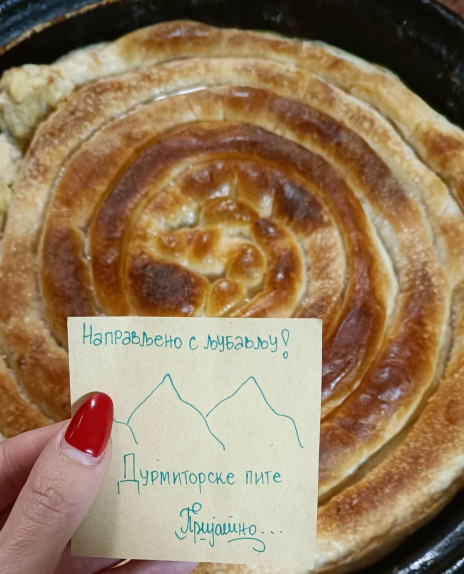 Направљено с љубављу!
Дурмиторске пите
Пријатно...